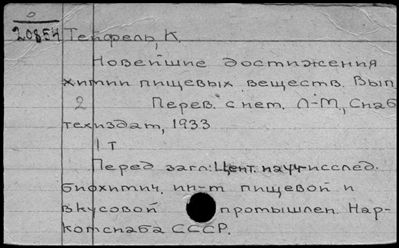 0
20854 Тейфель, К.
Новейшие достижения
химии пищевых веществ. Вып.
2 Перев. с нем. Л-М, Снаб
техиздат, 1933
1 т
Перед загл: Цент. науч-исслед.
биохимич. ин-т пищевой и
вкусовой промышлен. Нар-
комснаба СССР.